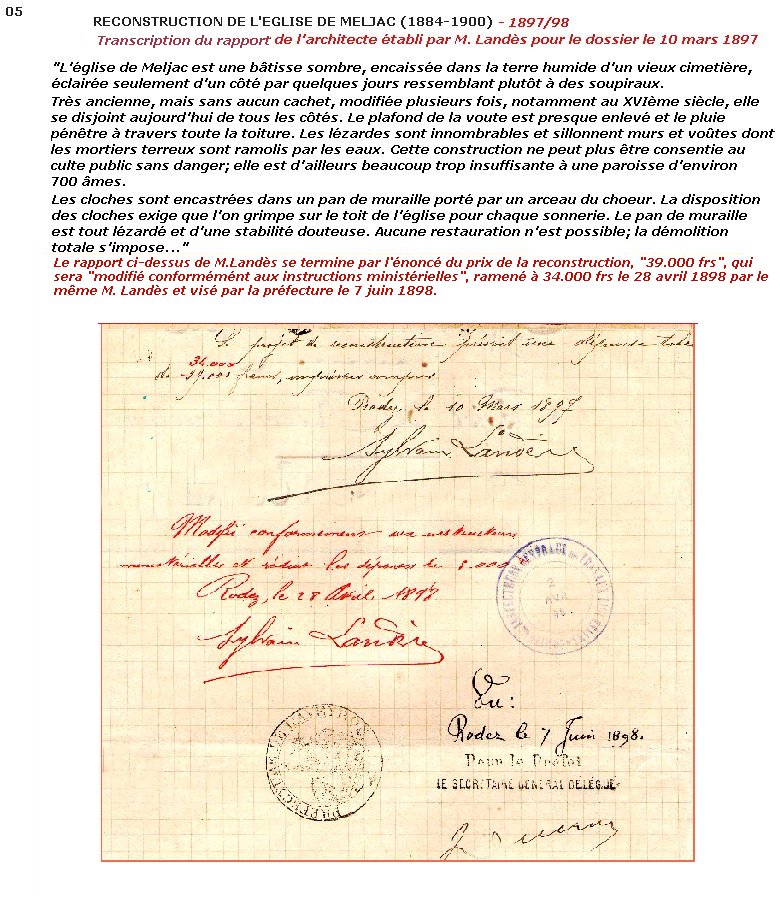 05
RECONSTRUCTION DE L'EGLISE DE MELJAC (1884-1900) - 1897/98
Transcription du rapport de l'architecte établi par M. Landès pour le dossier le 10 mars 1897
"L'église de Meljac est une bâtisse sombre, encaissée dans la terre humide d'un vieux cimetière,
éclairée seulement d'un côté par quelques jours ressemblant plutôt à des soupiraux.
Très ancienne, mais sans aucun cachet, modifiée plusieurs fois, notamment au XVIème siècle, elle
se disjoint aujourd'hui de tous les côtés. Le plafond de la voute est presque enlevé et le pluie
pénêtre à travers toute la toiture. Les lézardes sont innombrables et sillonnent murs et voûtes dont
les mortiers terreux sont ramolis par les eaux. Cette construction ne peut plus être consentie au
culte public sans danger; elle est d'ailleurs beaucoup trop insuffisante à une paroisse d'environ
700 âmes.
Les cloches sont encastrées dans un pan de muraille porté par un arceau du choeur. La disposition
des cloches exige que l'on grimpe sur le toit de l'église pour chaque sonnerie. Le pan de muraille
est tout lézardé et d'une stabilité douteuse. Aucune restauration n'est possible; la démolition
totale s'impose..."
Le rapport ci-dessus de M.Landès se termine par l'énoncé du prix de la reconstruction, "39.000 frs", qui
sera "modifié conformémént aux instructions ministérielles", ramené à 34.000 frs le 28 avril 1898 par le
même M. Landès et visé par la préfecture le 7 juin 1898.
Le projet de reconstruction prévoit une dépense totale
34.000
de 39.000 francs, imprévus compris
Rodez, le 10 Mars 1897
Sylvain Landès
Modifié conformément aux instructions
ministérielles et réduit les dépenses de 5.000
Rodez, le 28 Avril 1898
Sylvain Landès
Vu:
Rodez le 7 Juin 1898.
Pour le Préfet
LE SECRÉTAIRE GÉNÉRAL DÉLÉGUÉ
PRÉFECTURE DE L'AVEYRON